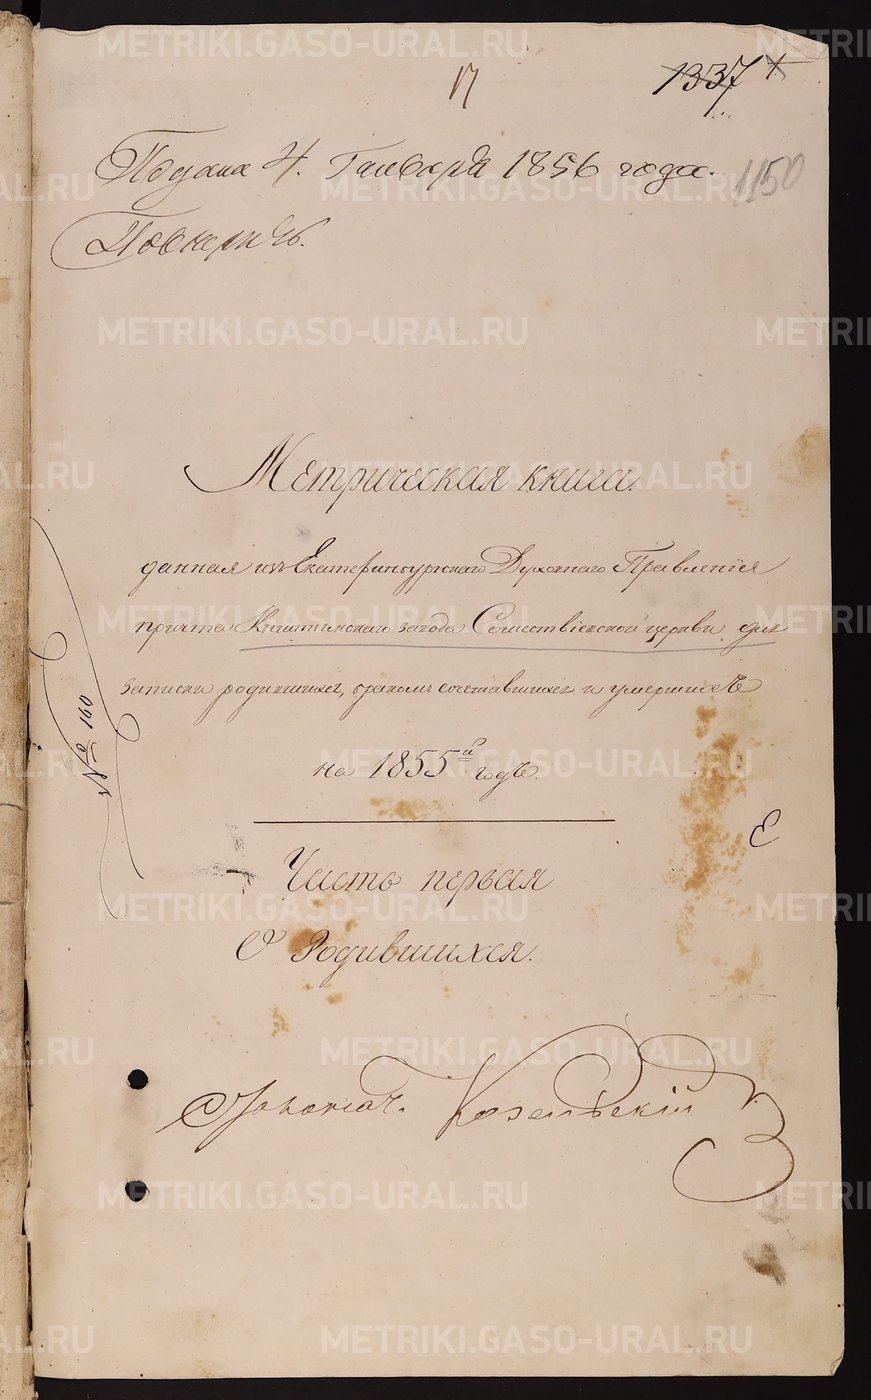 17
1337
1150
Подана 4. Генваря 1856 года.
Повѣрилъ.
Метрическая книга
данная изъ Екатеринбургскаго Духовнаго Правленія
причта Кыштымскаго завода Сошествіевской церкви для
записки родившихся, бракомъ сочетавшихся и умершихъ
на 1855й годъ.
№ 160
Часть первая
О Родившихся.
Козельскій
METRIKI.GASO-URAL.RU